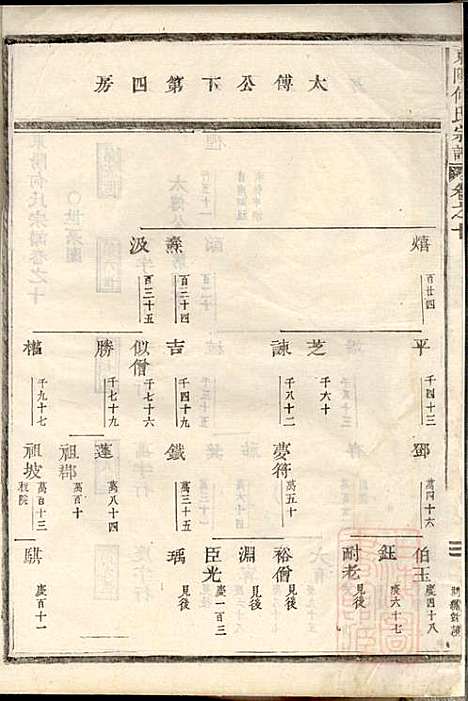 東陽何氏宗譜 卷之十
太傅公下第四房
熺 百廿四
燾 百三十四
汲 百三十五
平 千四十三
芝 千六十
諫 千八十二
吉 千四十九
似僧 千七十六
勝 千七十九
權 千九十七
鄧 萬四十六
夢符 萬五十
鐵 萬三十五
蓬 萬八十四
祖鄰 萬百十
祖坡 萬百十三
伯玉 慶四十八
鈺 慶六十七
耐老 見後
裕僧 見後
淵 見後
臣光 慶一百三
瑀 見後
騏 慶百十一